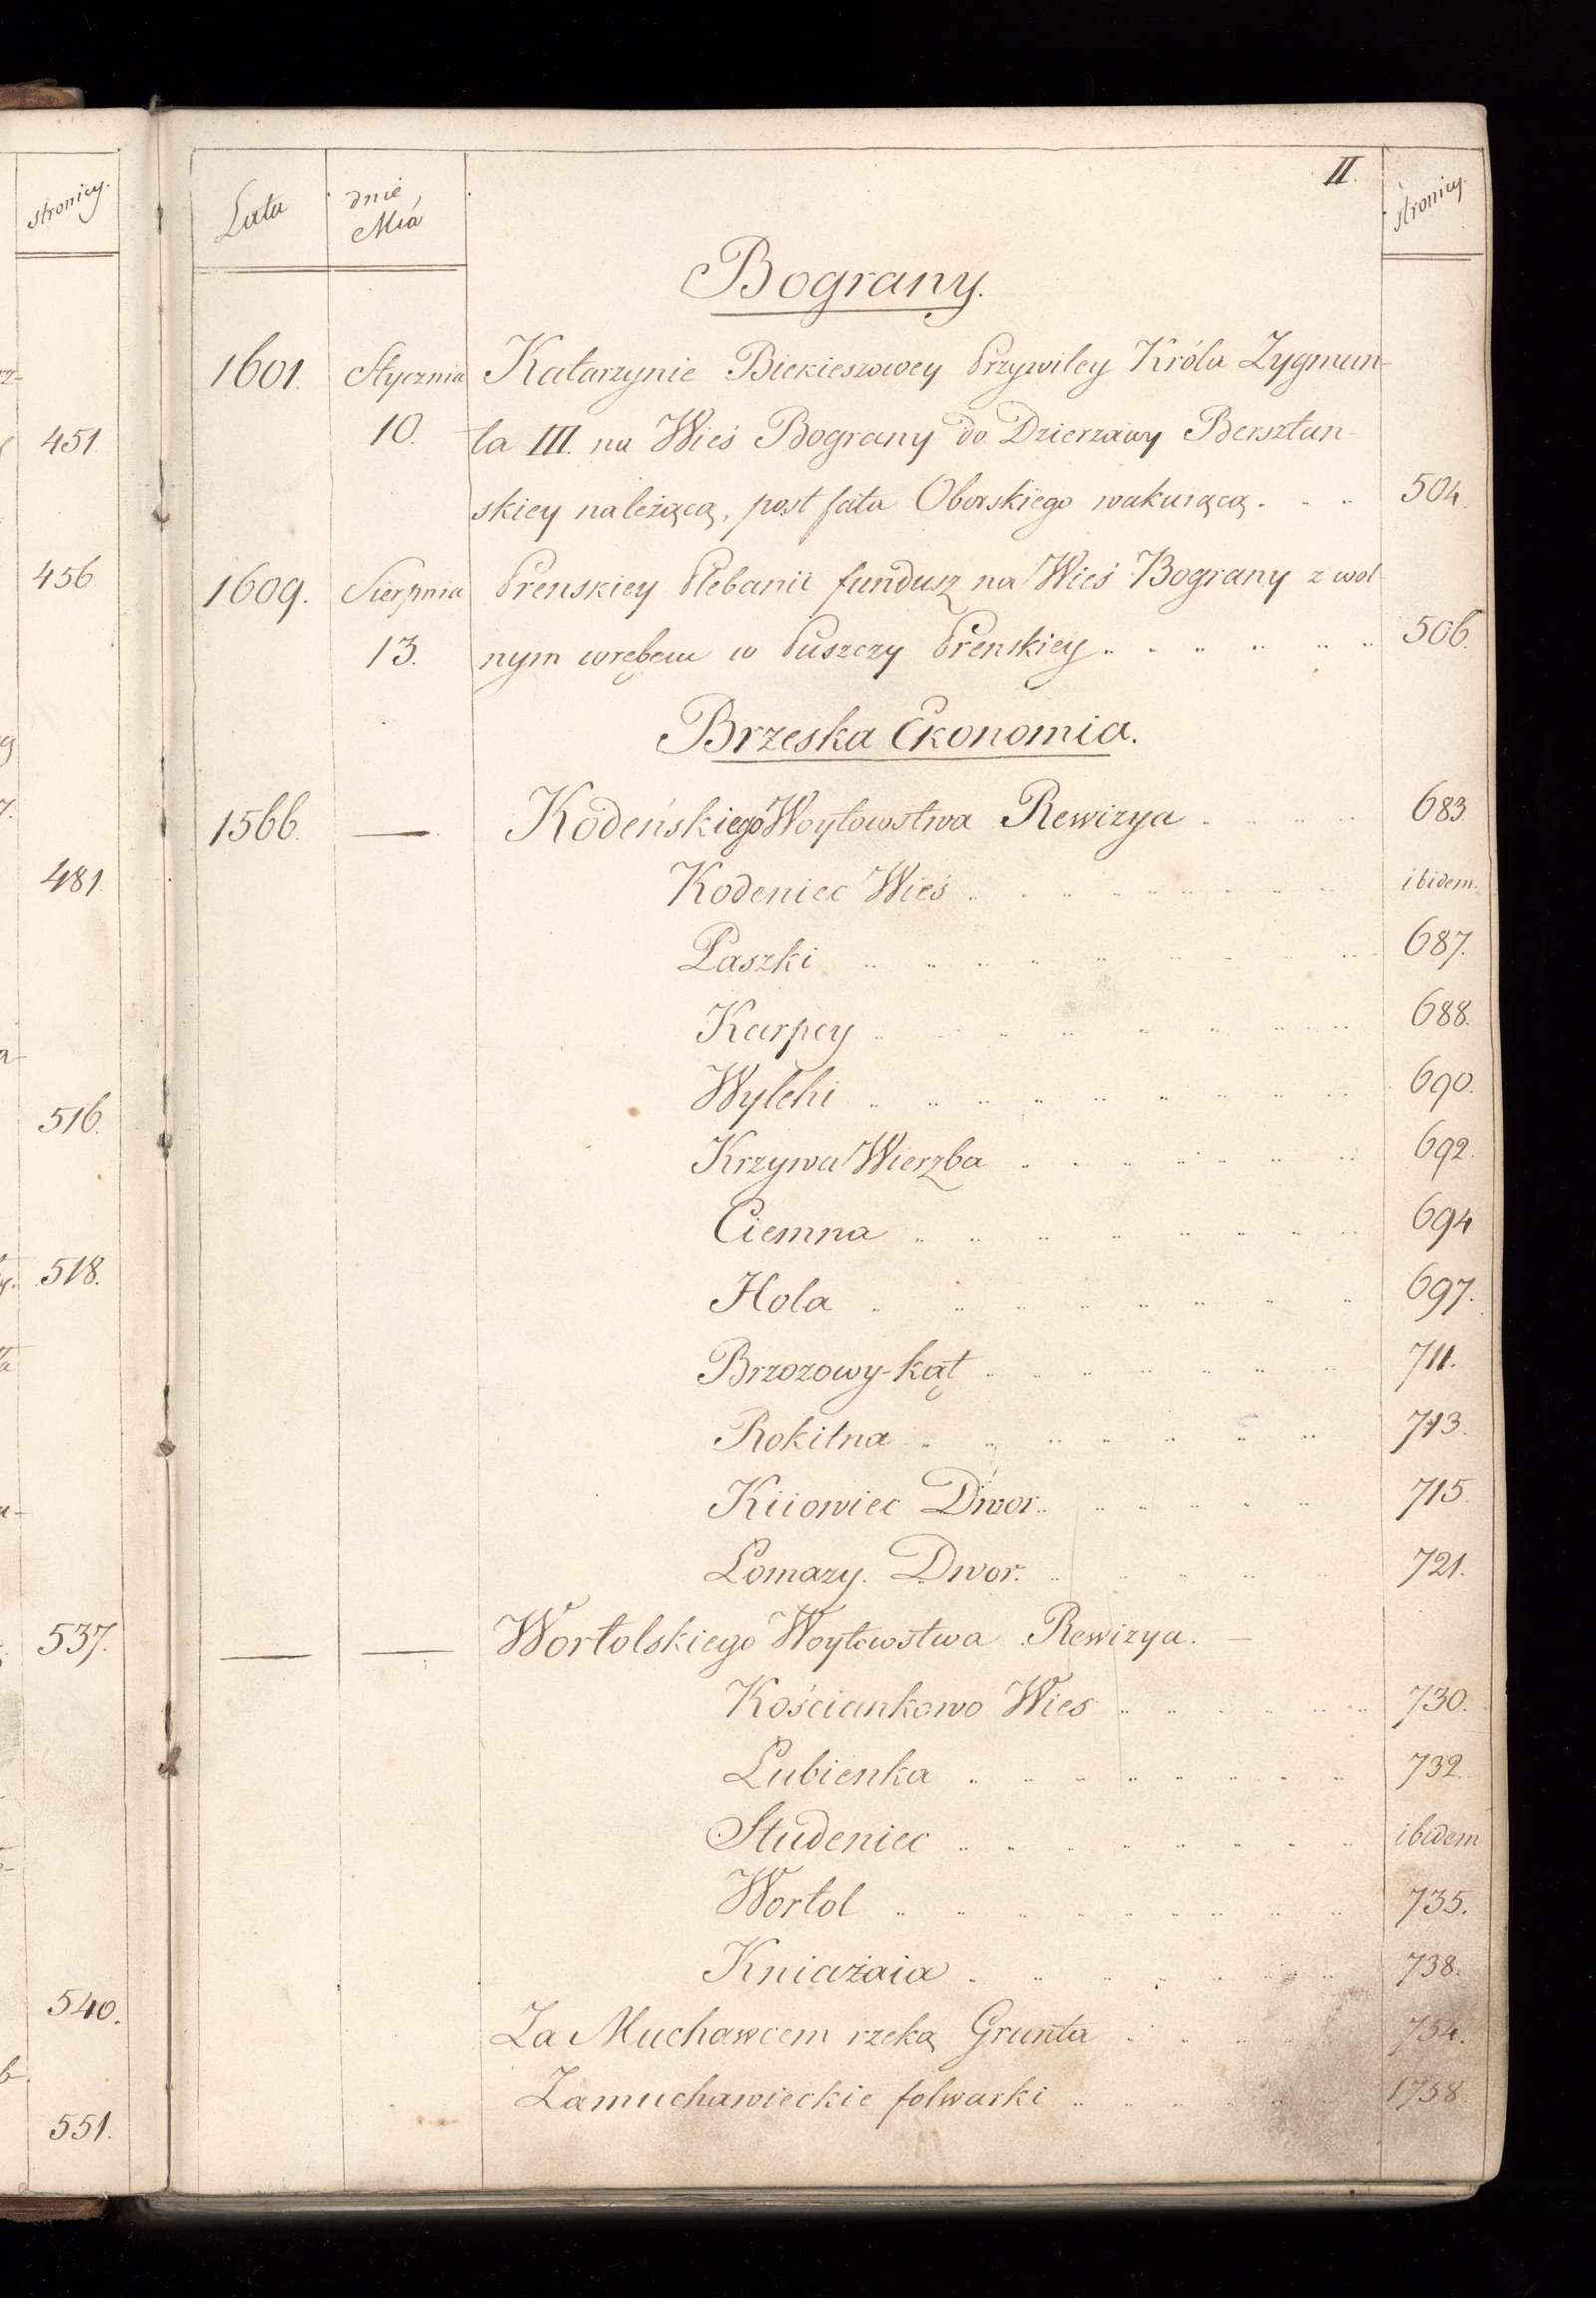 stronicy.
451.
456.
481.
516.
518.
537.
540.
551.
II.
Lata
dnie
Mcá
stronicy.
Bograny.
1601. Stycznia Katarzynie Biekieszowey Przywiley Króla Zygmun-
10. ta III. na Wieś Bograny do Dzierzawy Bersztan-
skiey należącą, post fata Oborskiego wakuiącą. 504.
1609. Sierpnia Prenskiey Plebanii fundusz na Wieś Bograny z wol-
13. nym wrębem w Puszczy Prenskiey 506.
Brzeska Ekonomia.
1566. — Kodeńskiego Woytowstwa Rewizya 683.
Kodeniec Wieś ibidem.
Paszki 687.
Karpey 688.
Wylehi 690.
Krzywa Wierzba 692.
Ciemna 694
Hola 697.
Brzozowy-kąt 711.
Rokitna 713.
Kiiowiec Dwor. 715.
Lomazy. Dwor. 721.
— — Wortolskiego Woytowstwa Rewizya. —
Kościankowo Wies 730.
Lubienka 732.
Studeniec ibidem
Wortol 735.
Kniażaia 738.
Za Muchawcem rzeką Grunta 754.
Zamuchawieckie folwarki 1758.